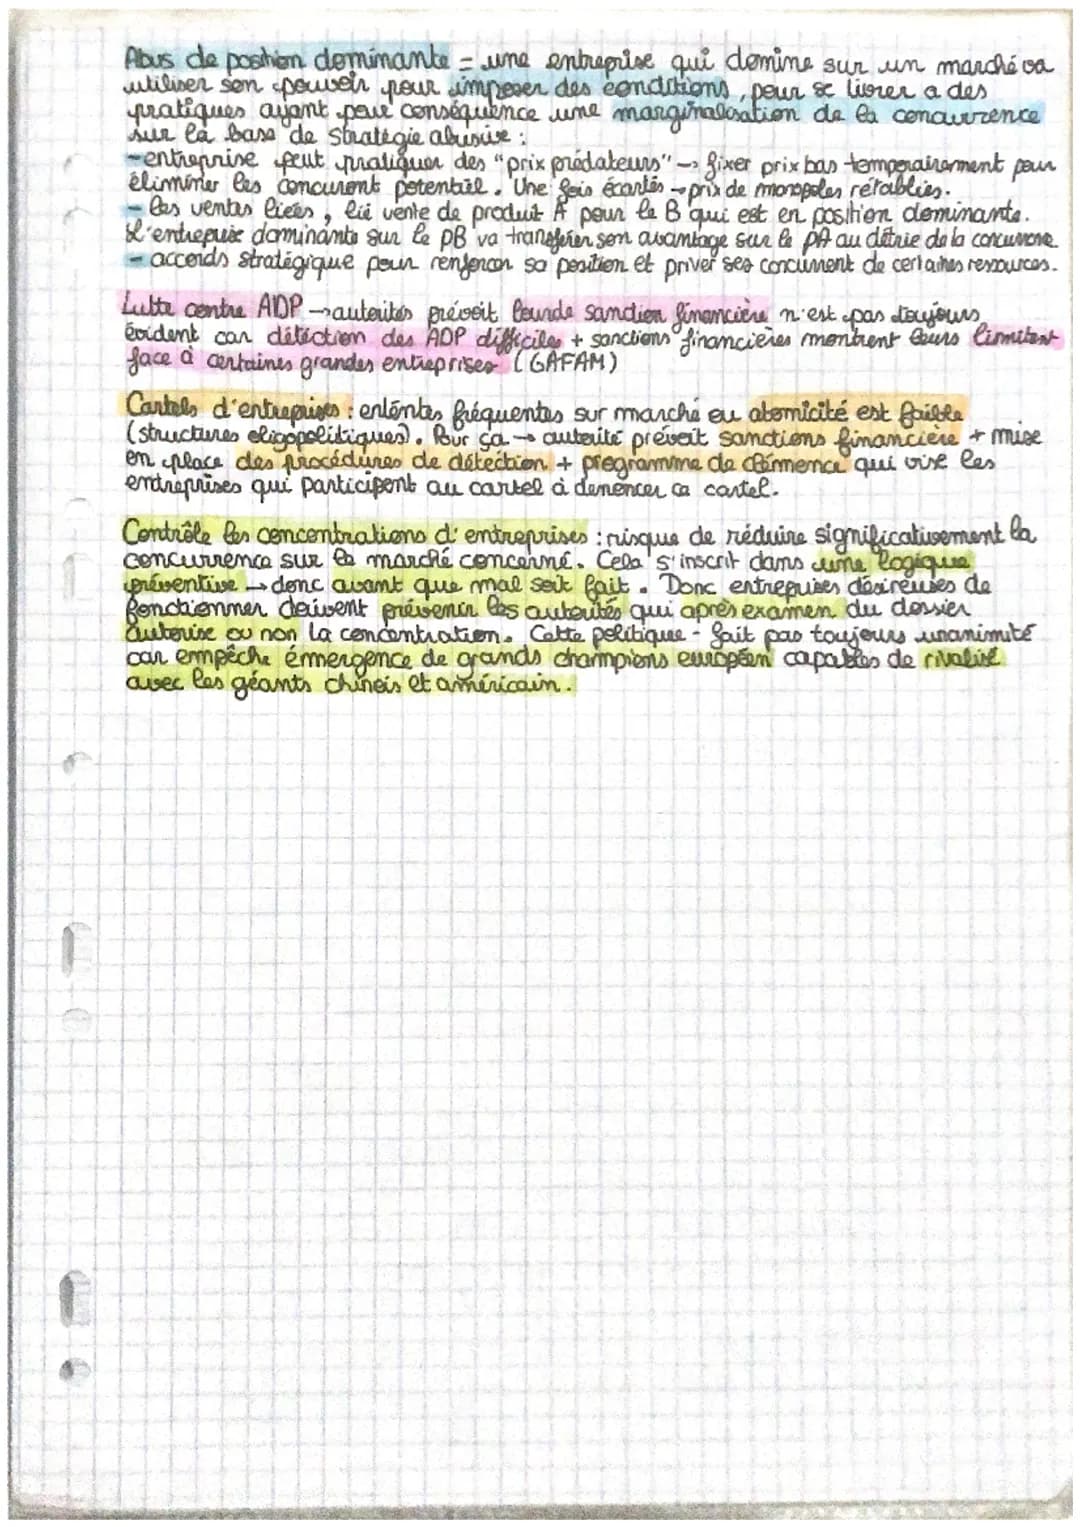 Abus de position dominante = une entreprise qui domine sur un marché va
utiliser son pouvoir pour imposer des conditions, pour se livrer a des
pratiques ayant pour conséquence une marginalisation de la concurrence
sur la base de stratégie abusive :
- entreprise peut pratiquer des "prix prédateurs" → fixer prix bas temporairement pour
éliminer les concurent potentiel. Une fois écartés → prix de monopoles rétablies.
- les ventes liées, lié vente de produit A pour le B qui est en position dominante.
L'entrepise dominante sur le pB va transférer son avantage sur le pA au détrie de la concurence
- accords stratégique pour renforcer sa position et priver ses concurrent de certaines ressources.
Lutte contre ADP → autorités prévoit lourde sanction financière n'est pas toujours
évident car détéction des ADP difficiles + sanctions financières montrent leurs limites
face à certaines grandes entreprises (GAFAM)
Cartels d'entreprises : ententes fréquentes sur marché ou atomicité est faible
(structures oligopolitiques). Pour ça → autorité prévoit sanctions financière + mise
en place des procédures de détection + programme de clémence qui vise les
entreprises qui participent au cartel à dénoncer ce cartel.
Contrôle les concentrations d'entreprises : risque de réduire significativement la
concurrence sur le marché concerné. Cela s'inscrit dans une logique
préventive → donc avant que mal soit fait. Donc entreprises désireuses de
fonctionner doivent prévenir les autorités qui après examen du dossier
autorise ou non la concentration. Cette politique - fait pas toujours unanimité
car empêche émmergence de grands champions européen capables de rivalisé
avec les géants chinois et américain.